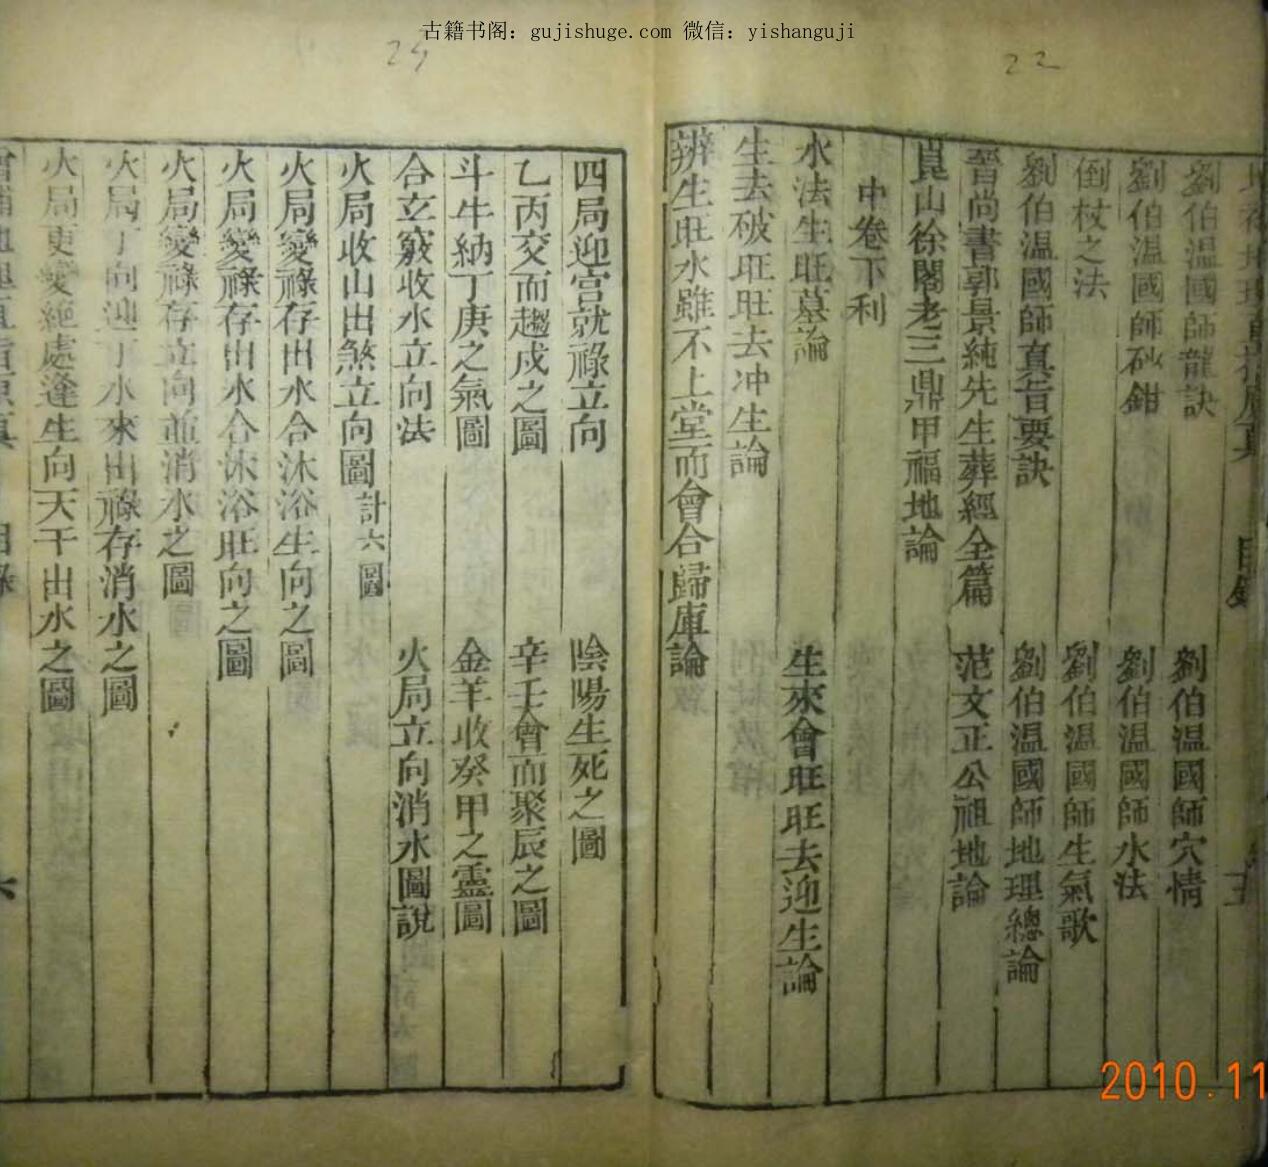 古籍书阁：gujishuge.com 微信：yishanguji
22
劉伯温國師龍訣 劉伯温國師穴情
劉伯温國師砂鉗 劉伯温國師水法
倒杖之法 劉伯温國師生氣歌
劉伯温國師真旨要訣 劉伯温國師地理總論
晉尚書郭景純先生葬經全篇 范文正公祖地論
崑山徐閣老三鼎甲福地論
中卷下利
水法生旺墓論 生來會旺旺去迎生論
生去破旺旺去冲生論
辨生旺水雖不上堂而會合歸庫論
24
四局迎宫就祿立向 陰陽生死之圖
乙丙交而趨戍之圖 辛壬會而聚辰之圖
斗牛納丁庚之氣圖 金羊收癸甲之靈圖
合立竅收水立向法 火局立向消水圖說
火局收山出煞立向圖計六圖
火局變祿存出水合沐浴生向之圖
火局變祿存出水合沐浴旺向之圖
火局變祿存立向並消水之圖
火局丁向迎丁水來出祿存消水之圖
火局更變絕處逢生向天干出水之圖
六
2010.11